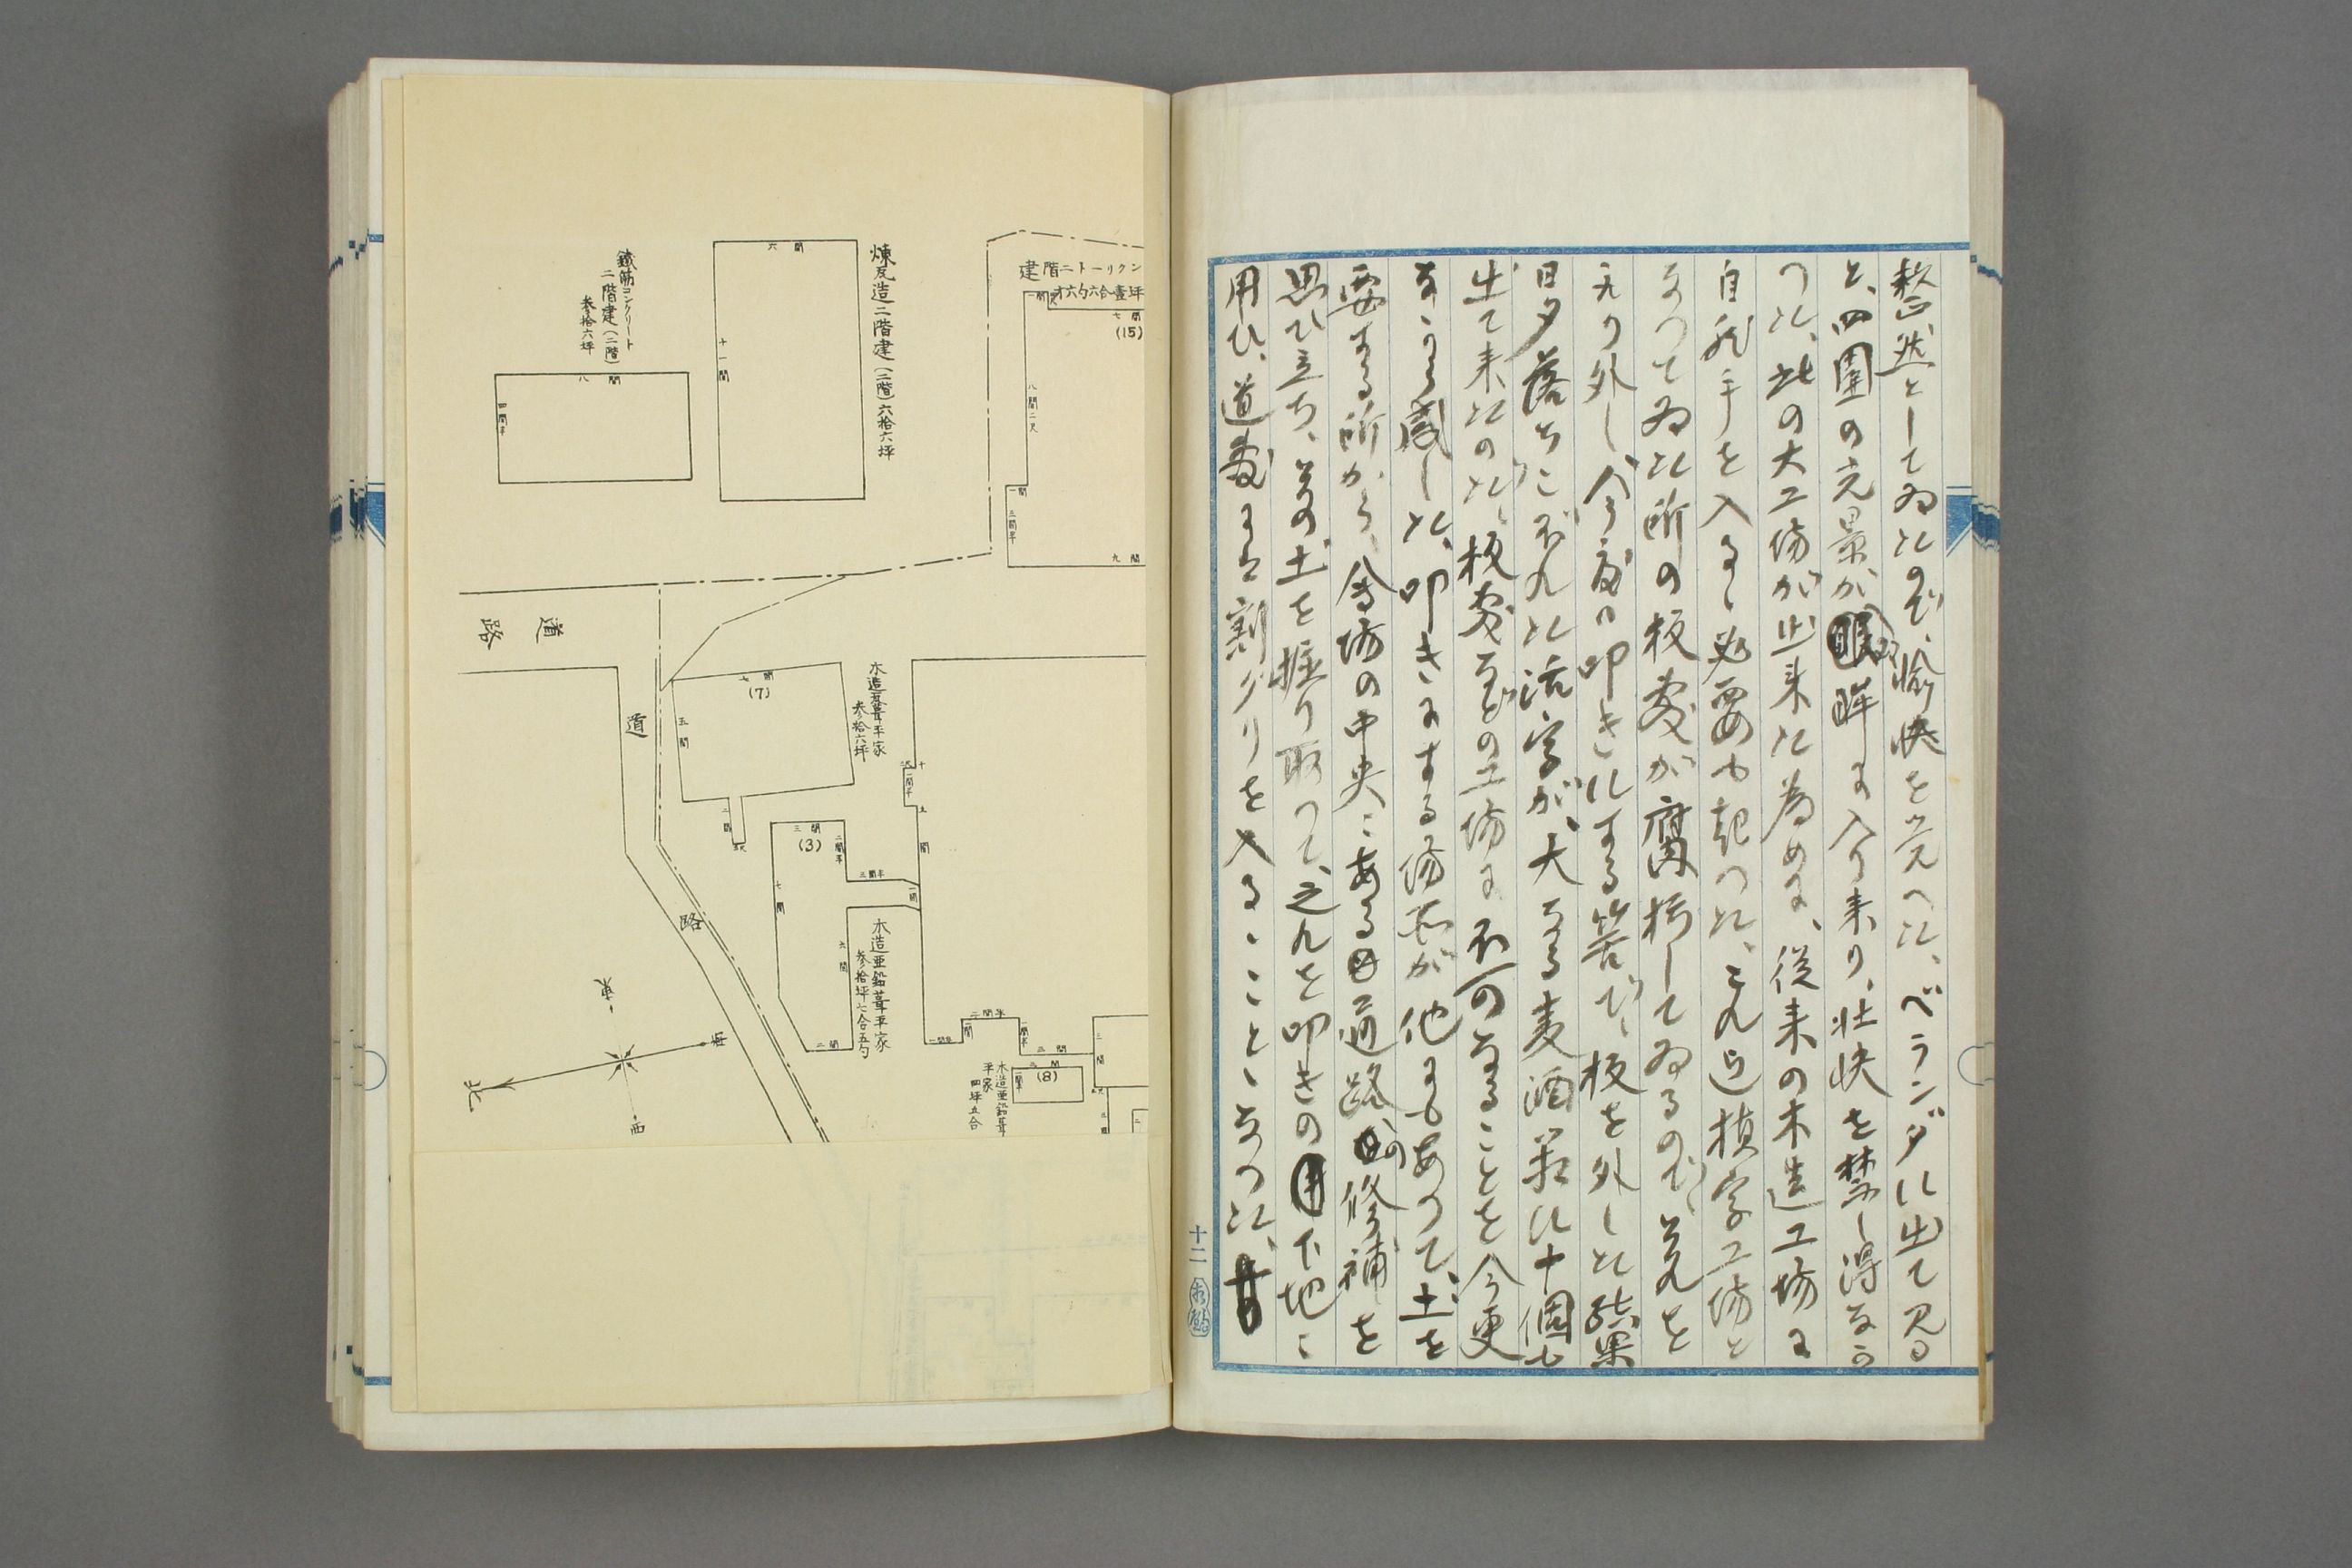 整然としてゐたので、愉快を覚へた、ベランダに出て見る
と、四囲の光景が眼眸に入り来り、壮快を禁じ得なか
つた、此の大工場が出来た為めに、従来の木造工場に
自然手を入るゝ必要も起つた、これ迄植字工場と
なつてゐた所の板敷が腐朽してゐるので、夫れを
取り外し、今度は叩きにする筈で、板を外した結果
日夕落ちこぼれた活字が、大なる麦酒箱に十個も
出て来たのだ、板敷などの工場に不可なることを今更
ながら感じた、叩きにする場所が他にもあつて、土を
要する所から、会場の中央にある道路の修補を
思ひ立ち、其の土を掘り取つて、之れを叩きの下地に
用ひ、道敷には割グリを入るゝことゝなつた、
十二
ンクリート二階建
坪壹合六勺六才
七間
(15)
八間二尺
一間
三間半
九間
煉瓦造二階建(二階)六拾六坪
六間
十一間
鐵筋コンクリート
二階建(二階)
参拾六坪
八間
四間半
道路
道路
木造瓦葺平家
参拾六坪
七間
(7)
五間
二間
三間
(3)
二間半
三間半
一間
七間
六間
二間
木造亜鉛葺平家
参拾坪七合五勺
二間半
一間
二間
三間
(8)
木造亜鉛葺
平家
四坪五合
東
南
西
北